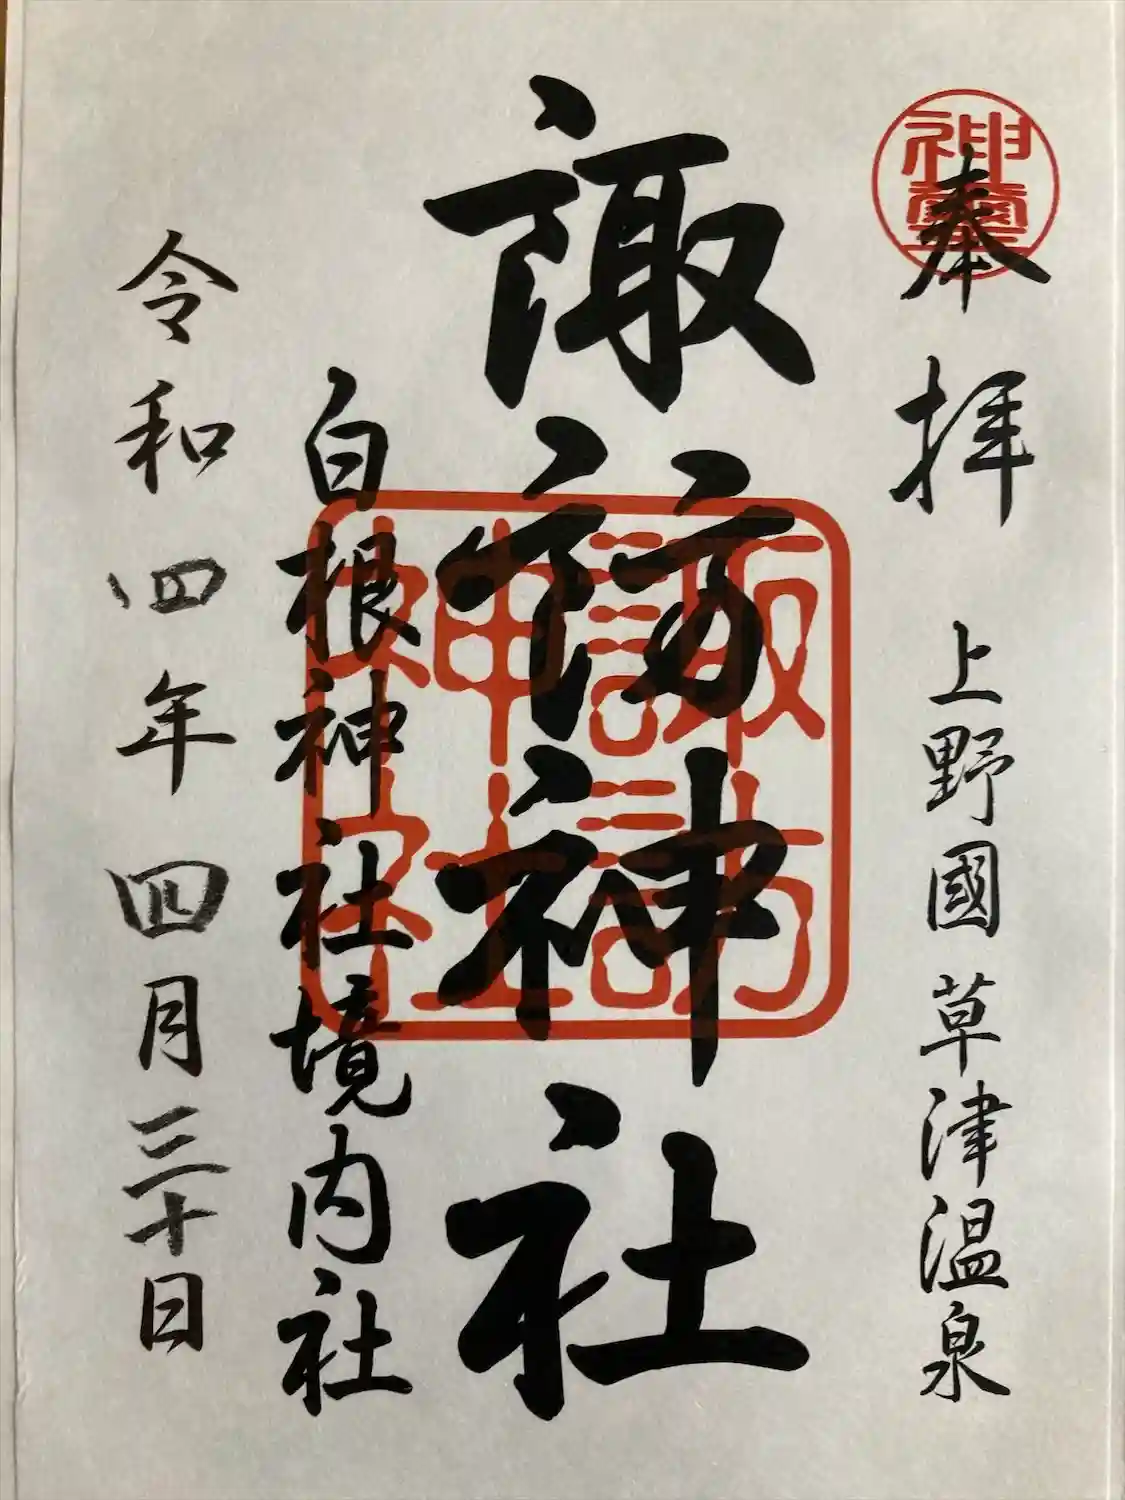 神璽
奉拝
上野國草津温泉
諏訪神社
諏訪
神社
白根神社境内社
令和四年四月三十日